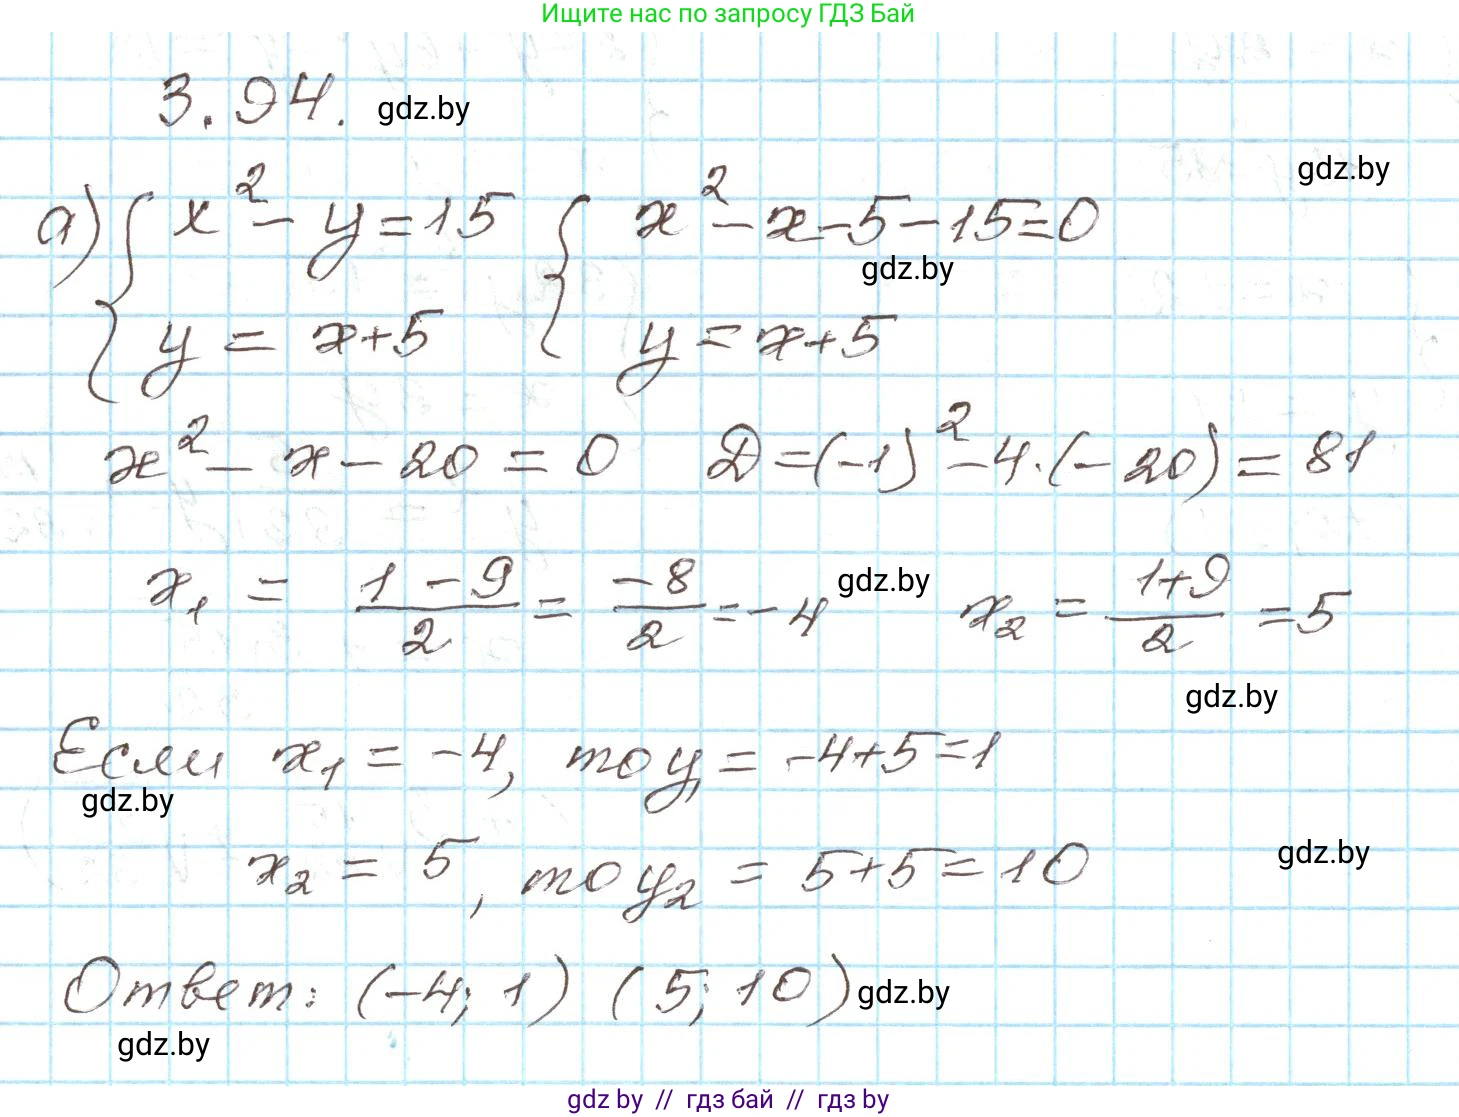 Ищите нас по запросу ГДЗ Бай
3.94. gdz.by
gdz.by
а) { x² - y = 15 { x² - x - 5 - 15 = 0
gdz.by
y = x + 5 y = x + 5
x² - x - 20 = 0 D = (-1)² - 4 · (-20) = 81
x₁ = (1 - 9)/2 = -8/2 = -4 gdz.by x₂ = (1 + 9)/2 = 5
gdz.by
Если x₁ = -4, то y₁ = -4 + 5 = 1
gdz.by
x₂ = 5, то y₂ = 5 + 5 = 10
gdz.by
Ответ: (-4; 1) (5; 10) gdz.by
gdz.by
gdz by // гдз бай // гдз by